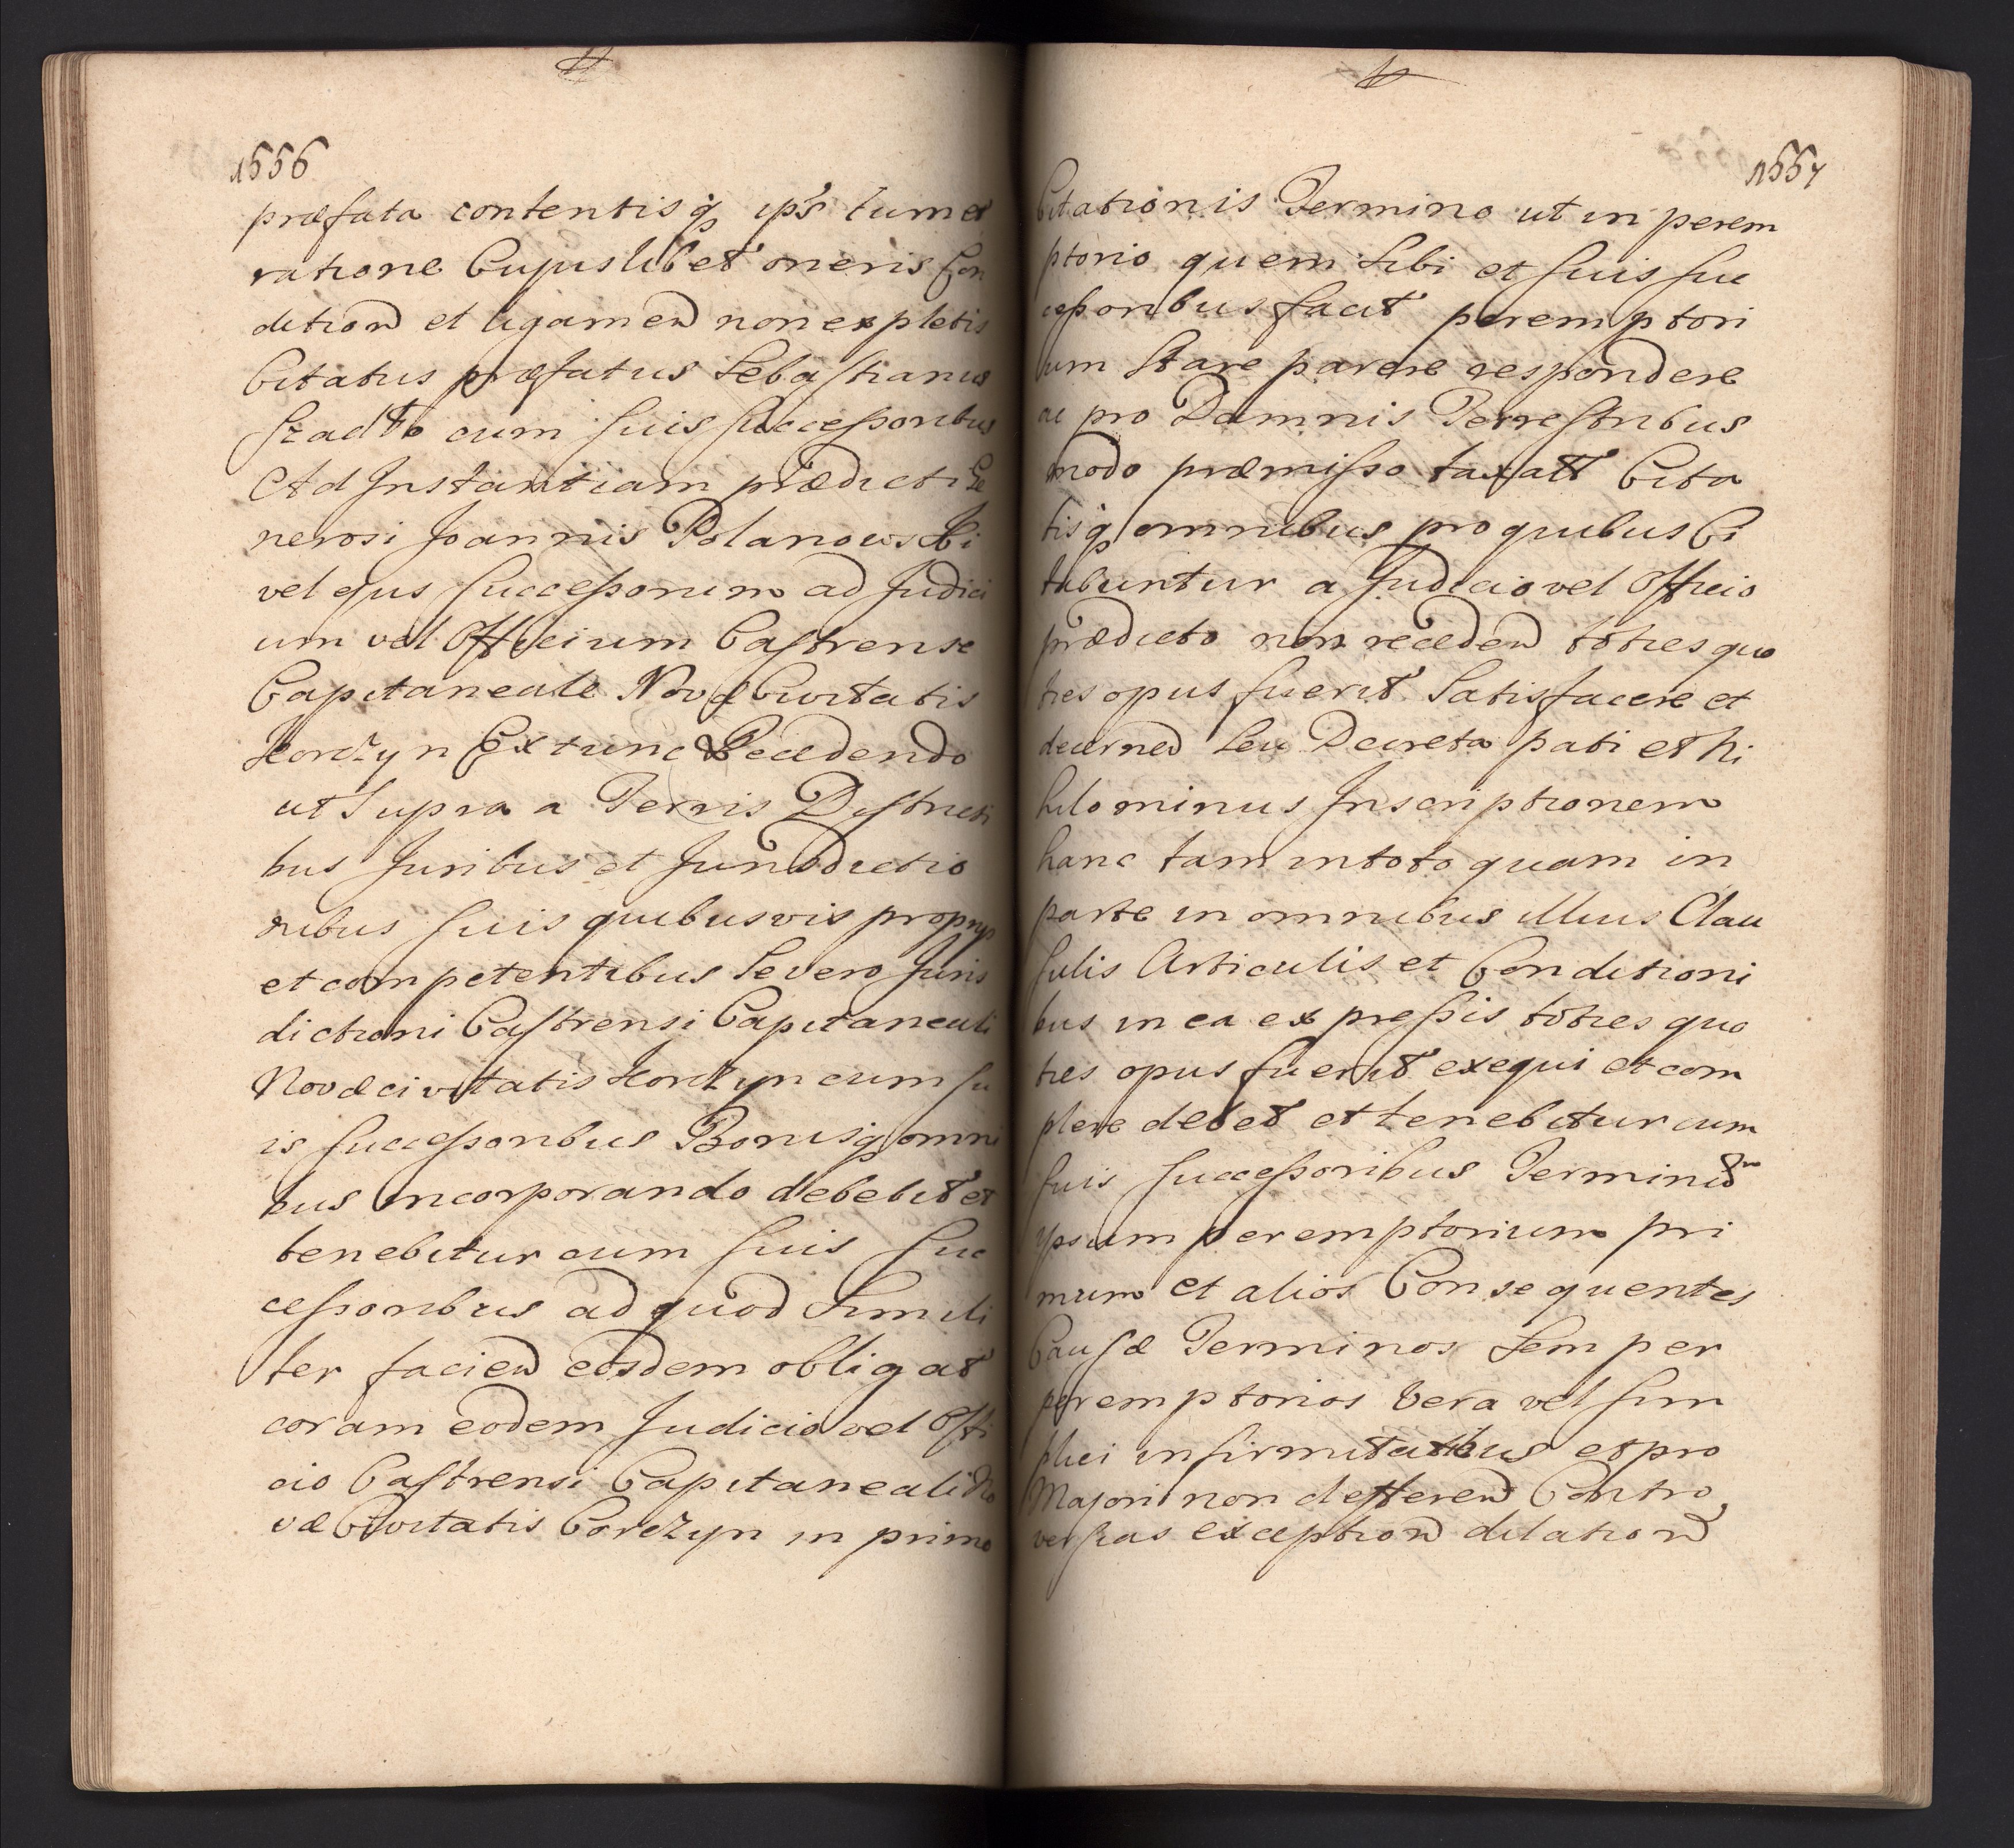 1556
præfata contentisq ips tum et
ratione Cujuslibet oneris Con
dition et ligamen non expletis
Citatus præfatus Sebastianus
cum suis successoribus
Ad Instantiam prædicti Ge
nerosi Joannis Polanowski
vel ejus Successorum ad Judici
um vel Officium Castrense
Capitaneale Novæ Civitatis
Korczyn Ex tunc Recedendo
ut Supra a Terris Districti
bus Juribus et Jurisdictio
nibus suis quibusvis proprijs
et competentibus Se vero Juris
dictioni Castrensi Capitaneali
Novæ civitatis Korczyn cum su
is successoribus Bonisq omni
bus incorporando debebit et
tenebitur cum suis suc
cessoribus ad quod Simili
ter facien eosdem obligat
coram eodem Judicio vel Offi
cio Castrensi Capitaneali No
væ Civitatis Corczyn in primo
1557
Citationis Termino ut in perem
ptorio quem Sibi et suis suc
cessoribus facit peremptori
um Stare parere respondere
ac pro Damnis Terrestribus
modo præmisso taxatt Cita
tisq omnibus pro quibus Ci
tabuntur a Judicio vel Officio
prædicto non receden toties quo
ties opus fuerit Satisfacere et
decernen Seu Decreta pati et Ni
hilominus Inscriptionem
hanc tam in toto quam in
parte in omnibus illius Clau
sulis Articulis et Conditioni
bus in ea expressis toties quo
ties opus fuerit exequi et com
plere debet et tenebitur cum
suis successoribus Terminū
ipsum peremptorium pri
mum et alios Consequentes
Causæ Terminos Semper
peremptorios Vera vel sim
plici infirmitatibus et pro
Majori non defferen Contro
versias exception dilation